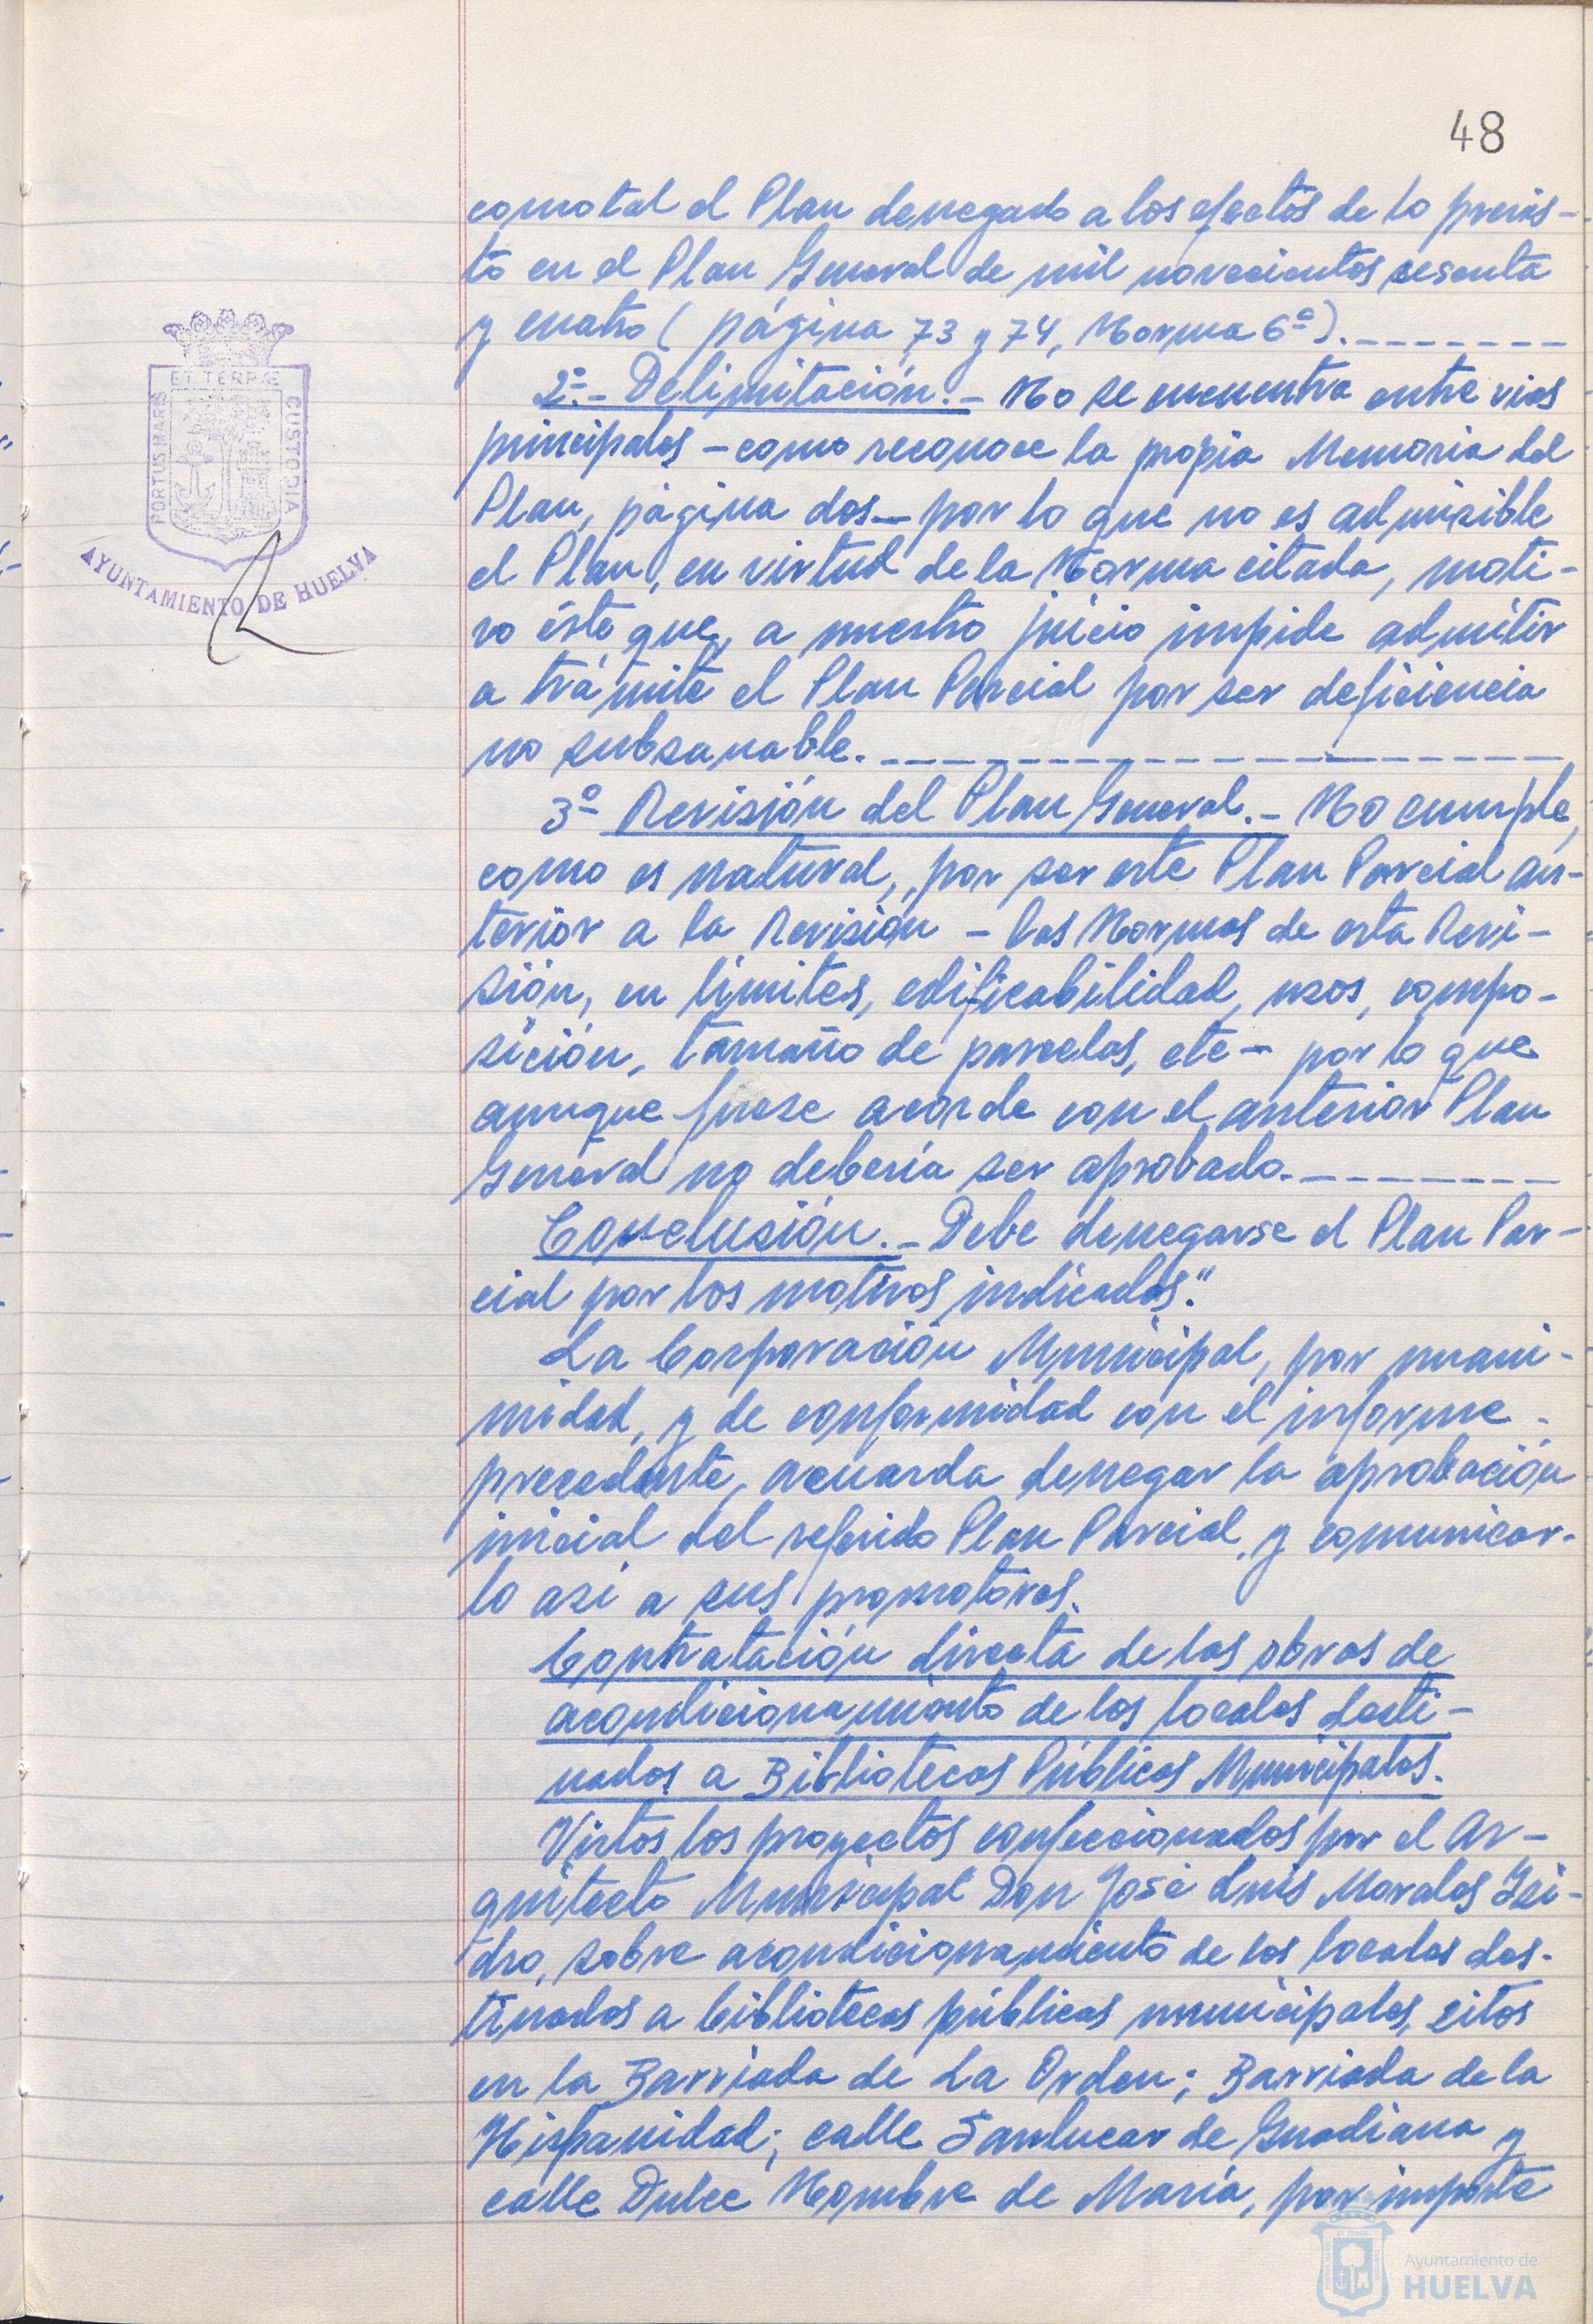 48
como tal el Plan denegado a los efectos de lo previs-
to en el Plan General de mil novecientos sesenta
y cuatro ( página 73 y 74, Norma 6ª).
2º.- Delimitación.- No se encuentra entre vias
principales - como reconoce la propia Memoria del
Plan, página dos - por lo que no es admisible
el Plan, en virtud de la Norma citada, moti-
vo éste que, a nuestro juicio impide admitir
a trámite el Plan Parcial por ser deficiencia
no subsanable.
3º Revisión del Plan General.- No cumple,
como es natural, por ser este Plan Parcial an-
terior a la Revisión - las Normas de esta Revi-
sión, en límites, edificabilidad, usos, compo-
sición, tamaño de parcelas, etc - por lo que
aunque fuese acorde con el anterior Plan
General no debería ser aprobado.
Conclusión.- Debe denegarse el Plan Par-
cial por los motivos indicados."
La Corporación Municipal, por unani-
midad, y de conformidad con el informe
precedente, acuerda denegar la aprobación
inicial del referido Plan Parcial y comunicar-
lo asi a sus promotores.
Contratación directa de las obras de
acondicionamiento de los locales desti-
nados a Bibliotecas Públicas Municipales.
Vistos los proyectos confeccionados por el Ar-
quitecto Municipal Don José Luis Morales Isi-
dro, sobre acondicionamiento de los locales des-
tinados a bibliotecas públicas municipales, sitos
en la Barriada de La Orden; Barriada de la
Hispanidad; calle Sanlucar de Guadiana y
calle Dulce Nombre de María, por importe
ET TERRÆ
PORTUS MARIS
CUSTODIA
AYUNTAMIENTO DE HUELVA
Ayuntamiento de
HUELVA